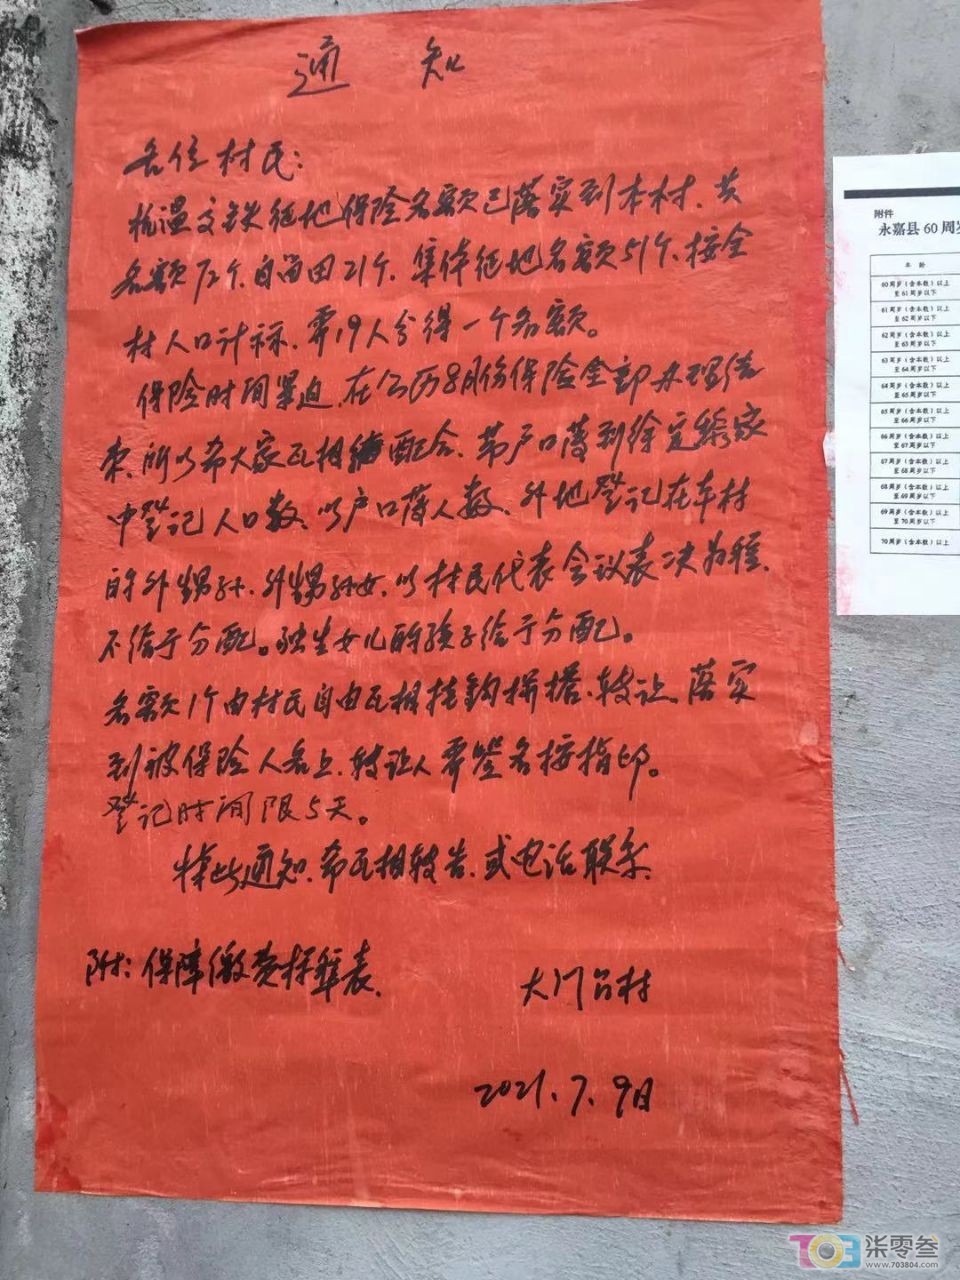 通 知
各位村民：
杭温高铁征地保险名额已落实到本村、共
名额72个、自留田21个、集体征地名额51个、按全
村人口计标、需19人分得一个名额。
保险时间紧迫、在公历8月份保险全部办理结
束、所以希大家互相 配合、带户口簿到徐定 家
中登记人口数、以户口簿人数、外地登记在本村
的外甥孙、外甥孙女、以村民代表会议表决为准、
不给于分配。独生女儿的孩子给于分配。
名额1个由村民自由互相挂钩拼搭、转让、落实
到被保险人名上、转让人需签名按指印。
登记时间限5天。
特此通知、希互相转告、或电话联系、
附：保障缴费标准表、
大门台村
2021.7.9日
附件
永嘉县 60 周岁
年 龄
60 周岁（含本数）以上
至 61 周岁以下
61 周岁（含本数）以上
至 62 周岁以下
62 周岁（含本数）以上
至 63 周岁以下
63 周岁（含本数）以上
至 64 周岁以下
64 周岁（含本数）以上
至 65 周岁以下
65 周岁（含本数）以上
至 66 周岁以下
66 周岁（含本数）以上
至 67 周岁以下
67 周岁（含本数）以上
至 68 周岁以下
68 周岁（含本数）以上
至 69 周岁以下
69 周岁（含本数）以上
至 70 周岁以下
70 周岁（含本数）以上
703 柒零叁
www.703804.com